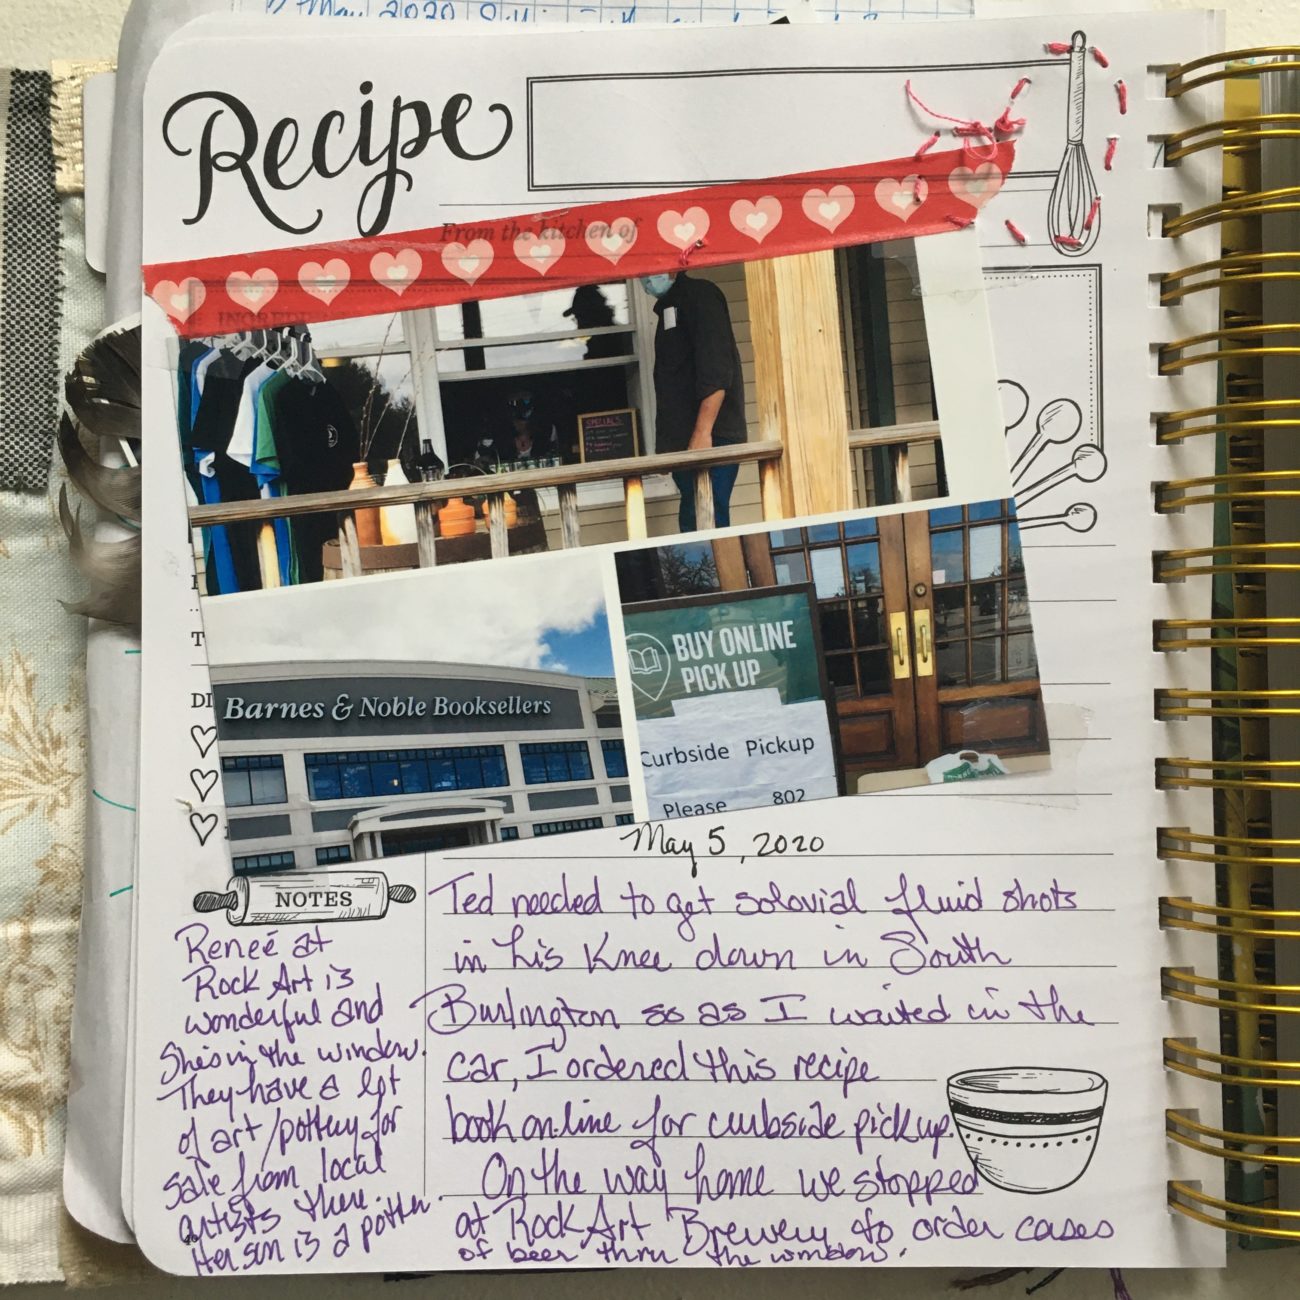 May 2020
Recipe
From the kitchen of
INGREDI
SPECIALS
T
DI
BUY ONLINE
PICK UP
Barnes & Noble Booksellers
Curbside Pickup
Please 802
May 5, 2020
NOTES
Ted needed to get solovial fluid shots
in his Knee down in South
Burlington so as I waited in the
car, I ordered this recipe
book on.line for curbside pickup.
On the way home we stopped
at Rock Art Brewery to order cases
of beer thru the window.
Reneé at
Rock Art is
wonderful and
She's in the window.
They have a lot
of art/pottery for
sale from local
artists there.
Her son is a potter.